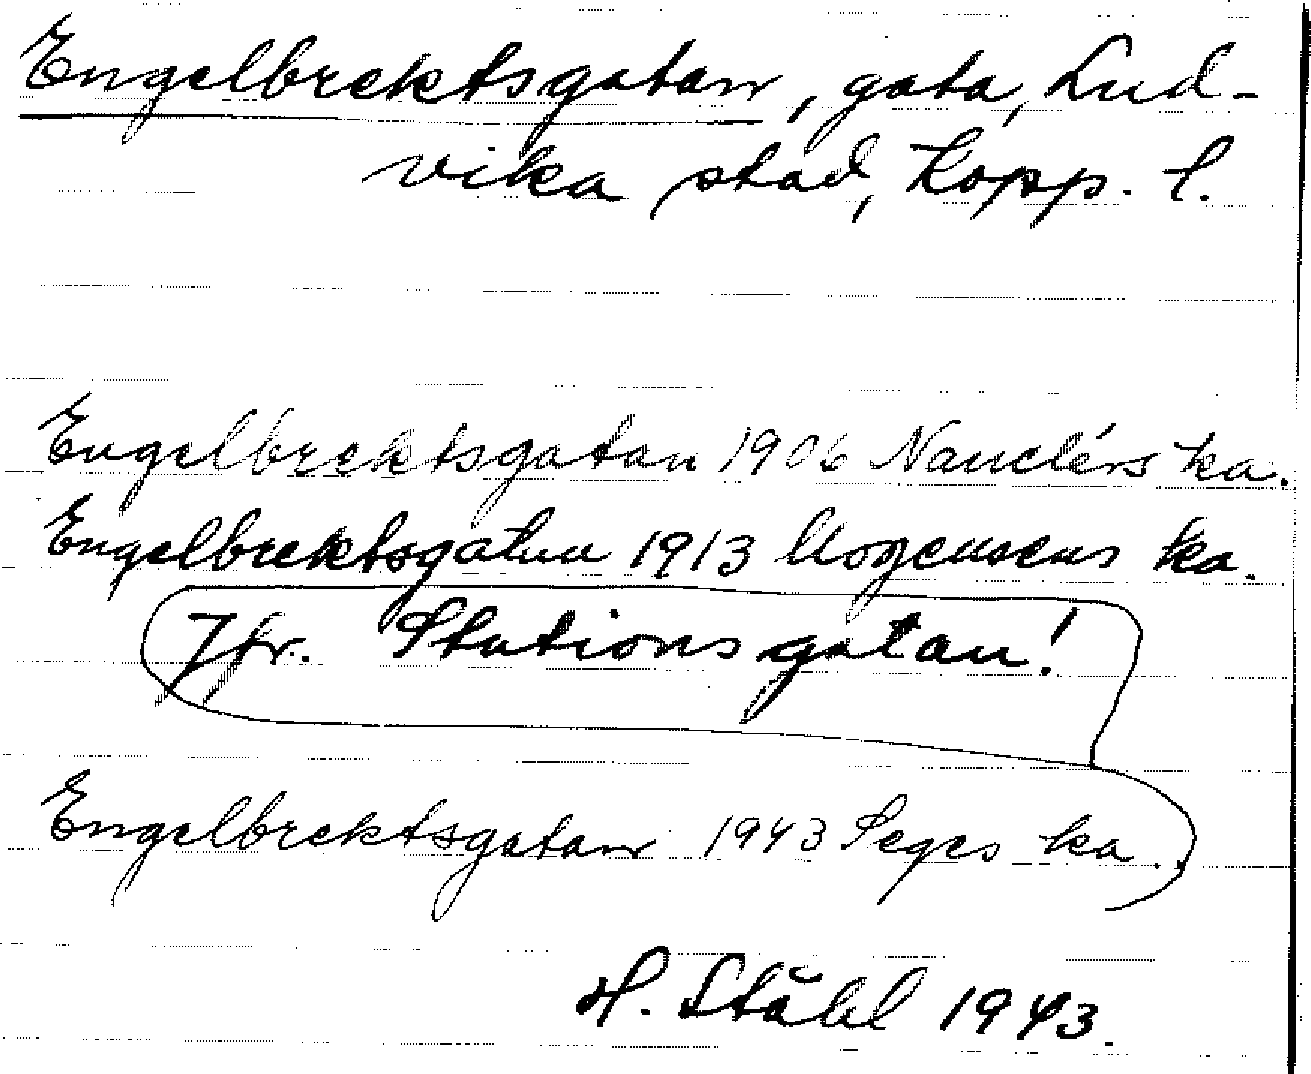 Engelbrektsgatan, gata, Lud-
vika stad, Kopp. l.
Engelbrektsgatan 1906 Nauclérs ka.
Engelbrektsgatan 1913 Mogensens ka.
Jfr. Stationsgatan!
Engelbrektsgatan 1943 Seges ka.
H. Ståhl 1943.